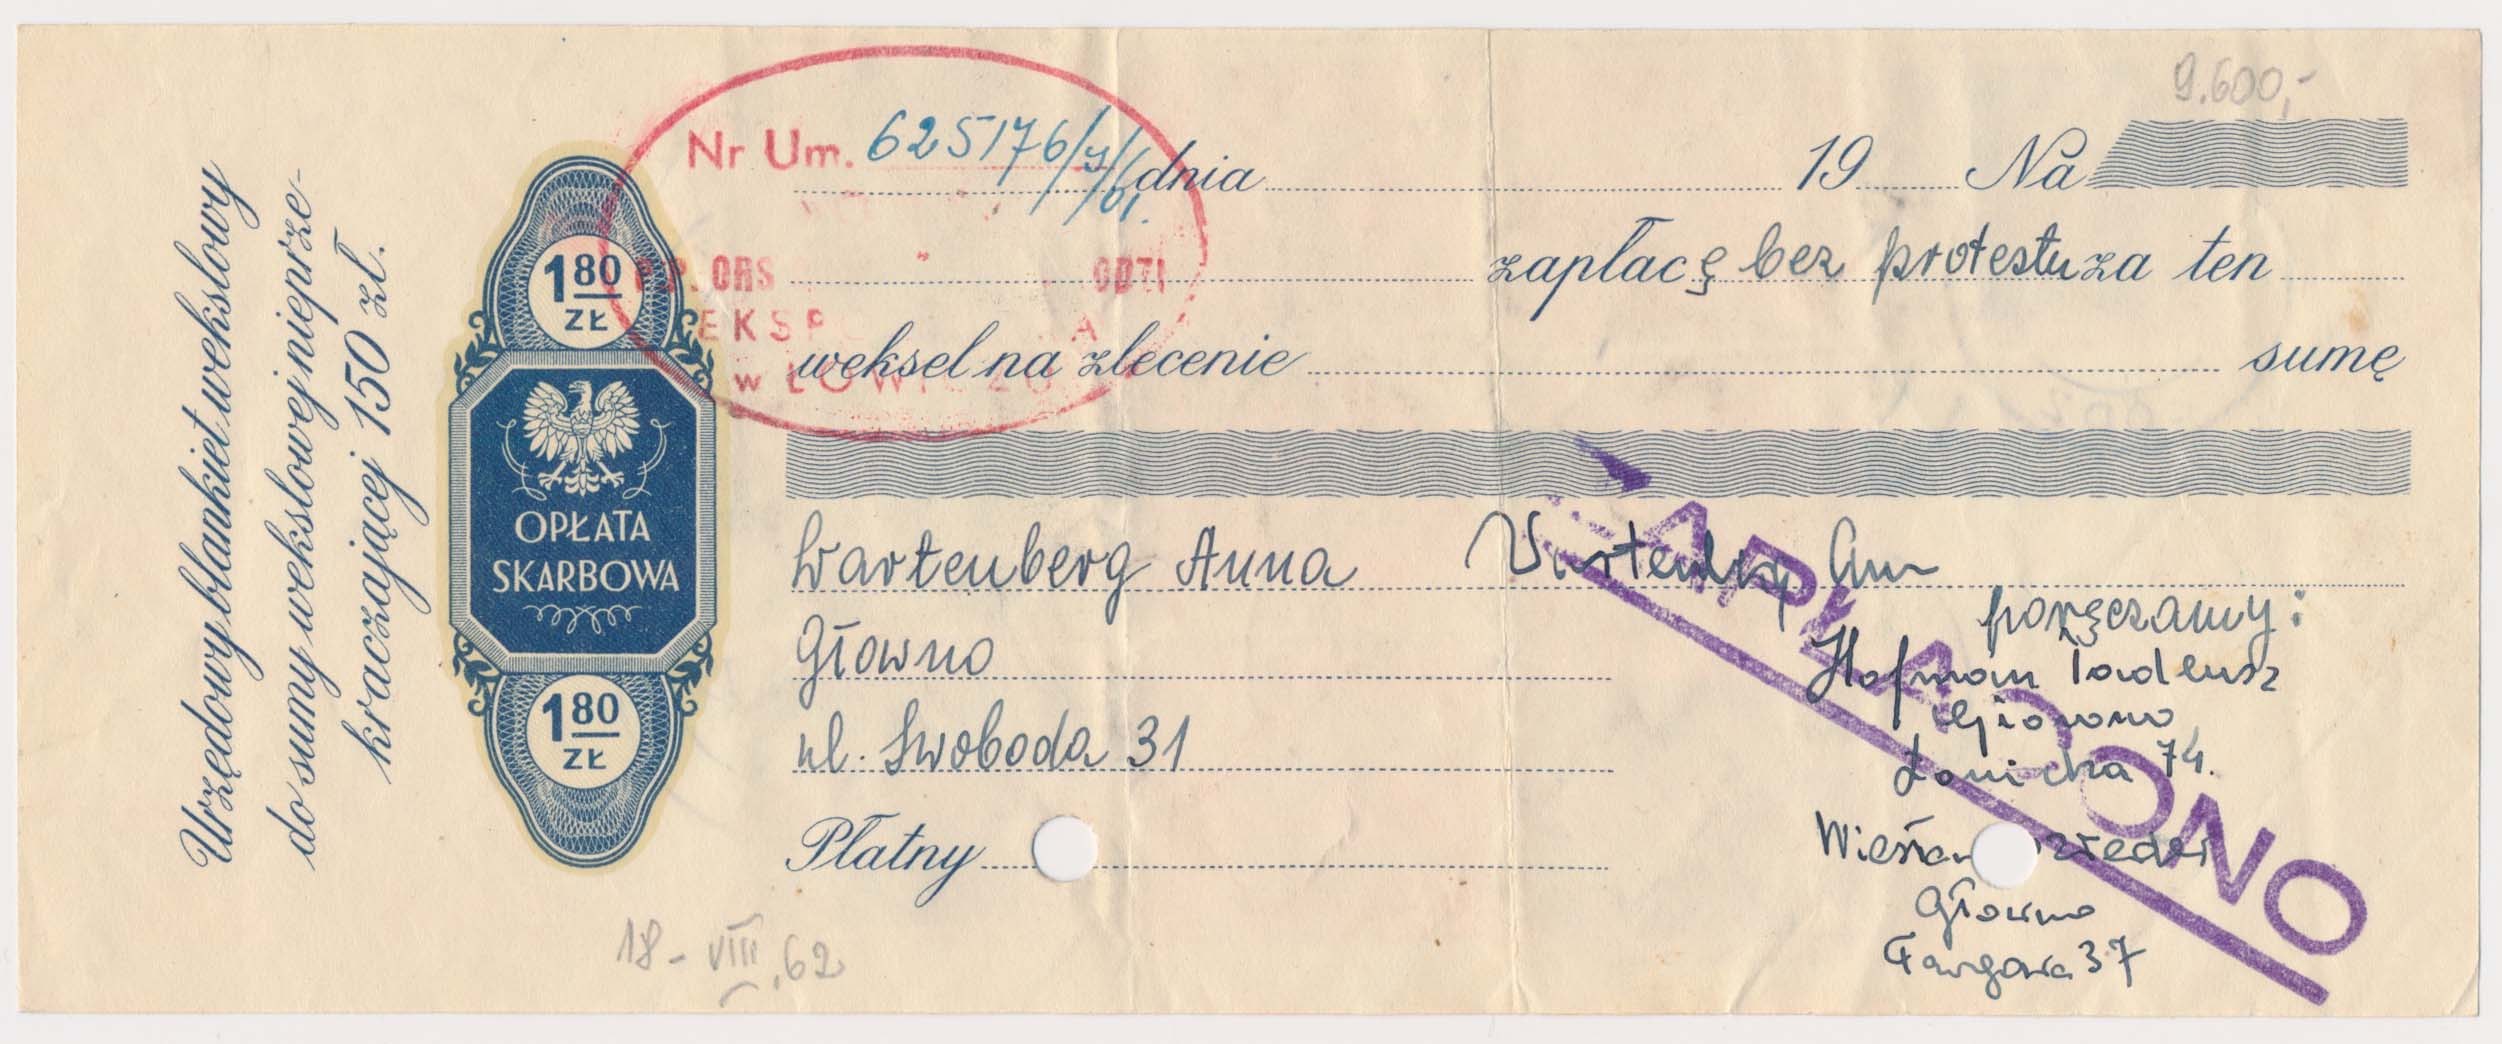 Urzędowy blankiet wekslowy
do sumy wekslowej nieprze-
kraczającej 150 zł.
1 80
ZŁ
OPŁATA
SKARBOWA
1 80
ZŁ
9.600,-
Nr Um. 625176/9/61. dnia 19 Na
ORS
zapłacę bez protestu za ten
EKSP A
weksel na zlecenie sumę
w ŁOWICZU
Wartenberg Anna
poręczamy:
Głowno Hofman Tadeusz
Głowno
ul. Swoboda 31 Łowicka 74.
Płatny
Głowno
Targowa 37
18-VIII.62
ZAPŁACONO